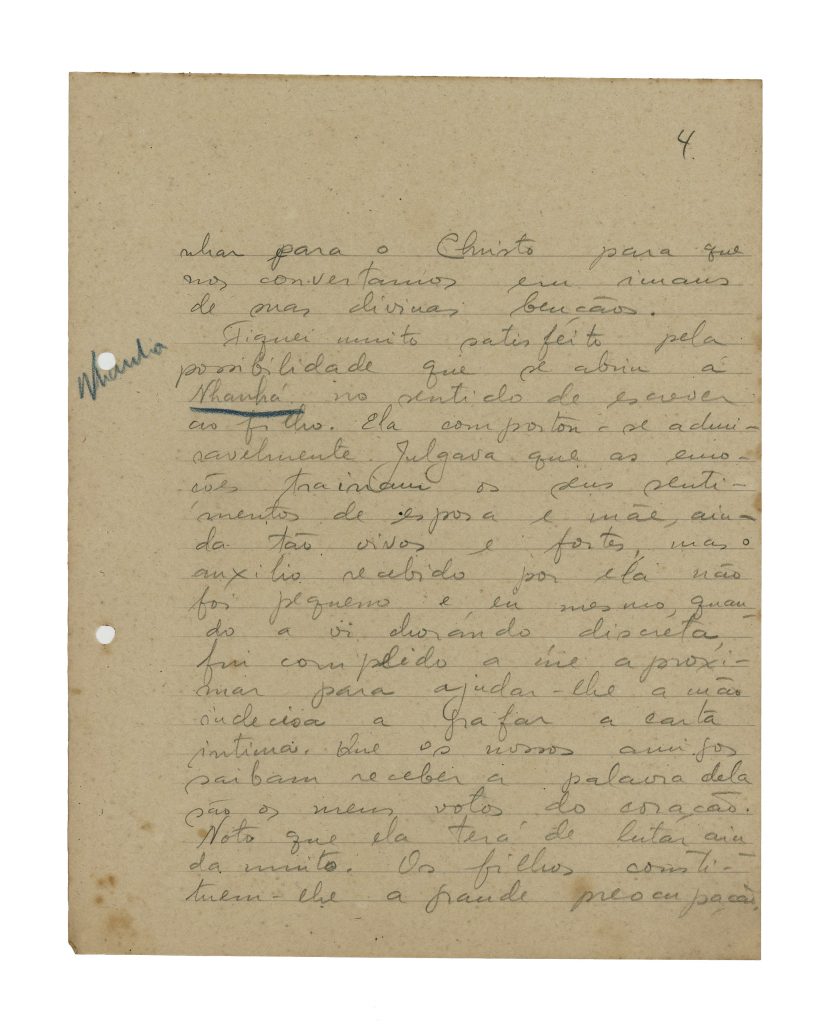 4
nhar para o Christo para que
nos convertamos em imans
de suas divinas bençãos.
Fiquei muito satisfeito pela
possibilidade que se abriu á
Nhanhá no sentido de escrever
Nhanha
ao filho. Ela comportou-se admi-
ravelmente. Julgava que as emo-
ções trairiam os seus senti-
mentos de esposa e mãe, ain-
da tão vivos e fortes, mas o
auxilio recebido por ela não
foi pequeno e, eu mesmo, quan-
do a vi chorando discreta,
fui compelido a me aproxi-
mar para ajudar-lhe a mão
indecisa a grafar a carta
intima. Que os nossos amigos
saibam receber a palavra dela
são os meus votos do coração.
Noto que ela terá de lutar ain
da muito. Os filhos consti-
tuem-lhe a grande preocupação,